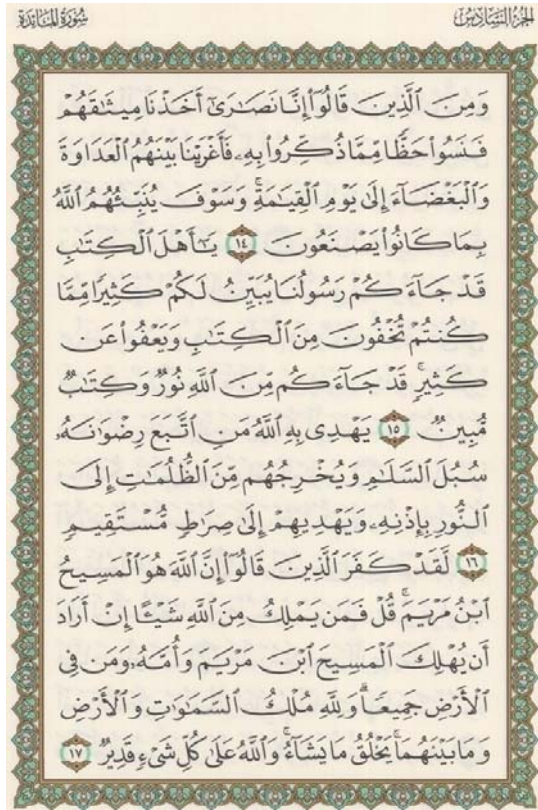 الجزء السادس
سورة المائدة
وَمِنَ ٱلَّذِينَ قَالُوٓا۟ إِنَّا نَصَـٰرَىٰٓ أَخَذْنَا مِيثَـٰقَهُمْ
فَنَسُوا۟ حَظًّا مِّمَّا ذُكِّرُوا۟ بِهِۦ فَأَغْرَيْنَا بَيْنَهُمُ ٱلْعَدَاوَةَ
وَٱلْبَغْضَآءَ إِلَىٰ يَوْمِ ٱلْقِيَـٰمَةِ ۚ وَسَوْفَ يُنَبِّئُهُمُ ٱللَّهُ
بِمَا كَانُوا۟ يَصْنَعُونَ ١٤ يَـٰٓأَهْلَ ٱلْكِتَـٰبِ
قَدْ جَآءَكُمْ رَسُولُنَا يُبَيِّنُ لَكُمْ كَثِيرًا مِّمَّا
كُنتُمْ تُخْفُونَ مِنَ ٱلْكِتَـٰبِ وَيَعْفُوا۟ عَن
كَثِيرٍ ۚ قَدْ جَآءَكُم مِّنَ ٱللَّهِ نُورٌ وَكِتَـٰبٌ
مُّبِينٌ ١٥ يَهْدِى بِهِ ٱللَّهُ مَنِ ٱتَّبَعَ رِضْوَٰنَهُۥ
سُبُلَ ٱلسَّلَـٰمِ وَيُخْرِجُهُم مِّنَ ٱلظُّلُمَـٰتِ إِلَى
ٱلنُّورِ بِإِذْنِهِۦ وَيَهْدِيهِمْ إِلَىٰ صِرَٰطٍ مُّسْتَقِيمٍ
١٦ لَّقَدْ كَفَرَ ٱلَّذِينَ قَالُوٓا۟ إِنَّ ٱللَّهَ هُوَ ٱلْمَسِيحُ
ٱبْنُ مَرْيَمَ ۚ قُلْ فَمَن يَمْلِكُ مِنَ ٱللَّهِ شَيْـًٔا إِنْ أَرَادَ
أَن يُهْلِكَ ٱلْمَسِيحَ ٱبْنَ مَرْيَمَ وَأُمَّهُۥ وَمَن فِى
ٱلْأَرْضِ جَمِيعًا ۗ وَلِلَّهِ مُلْكُ ٱلسَّمَـٰوَٰتِ وَٱلْأَرْضِ
وَمَا بَيْنَهُمَا ۚ يَخْلُقُ مَا يَشَآءُ ۚ وَٱللَّهُ عَلَىٰ كُلِّ شَىْءٍ قَدِيرٌ ١٧